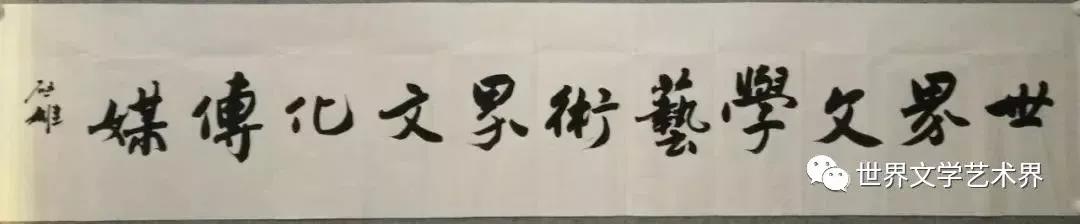 世界文學藝術界文化傳媒
世界文学艺术界